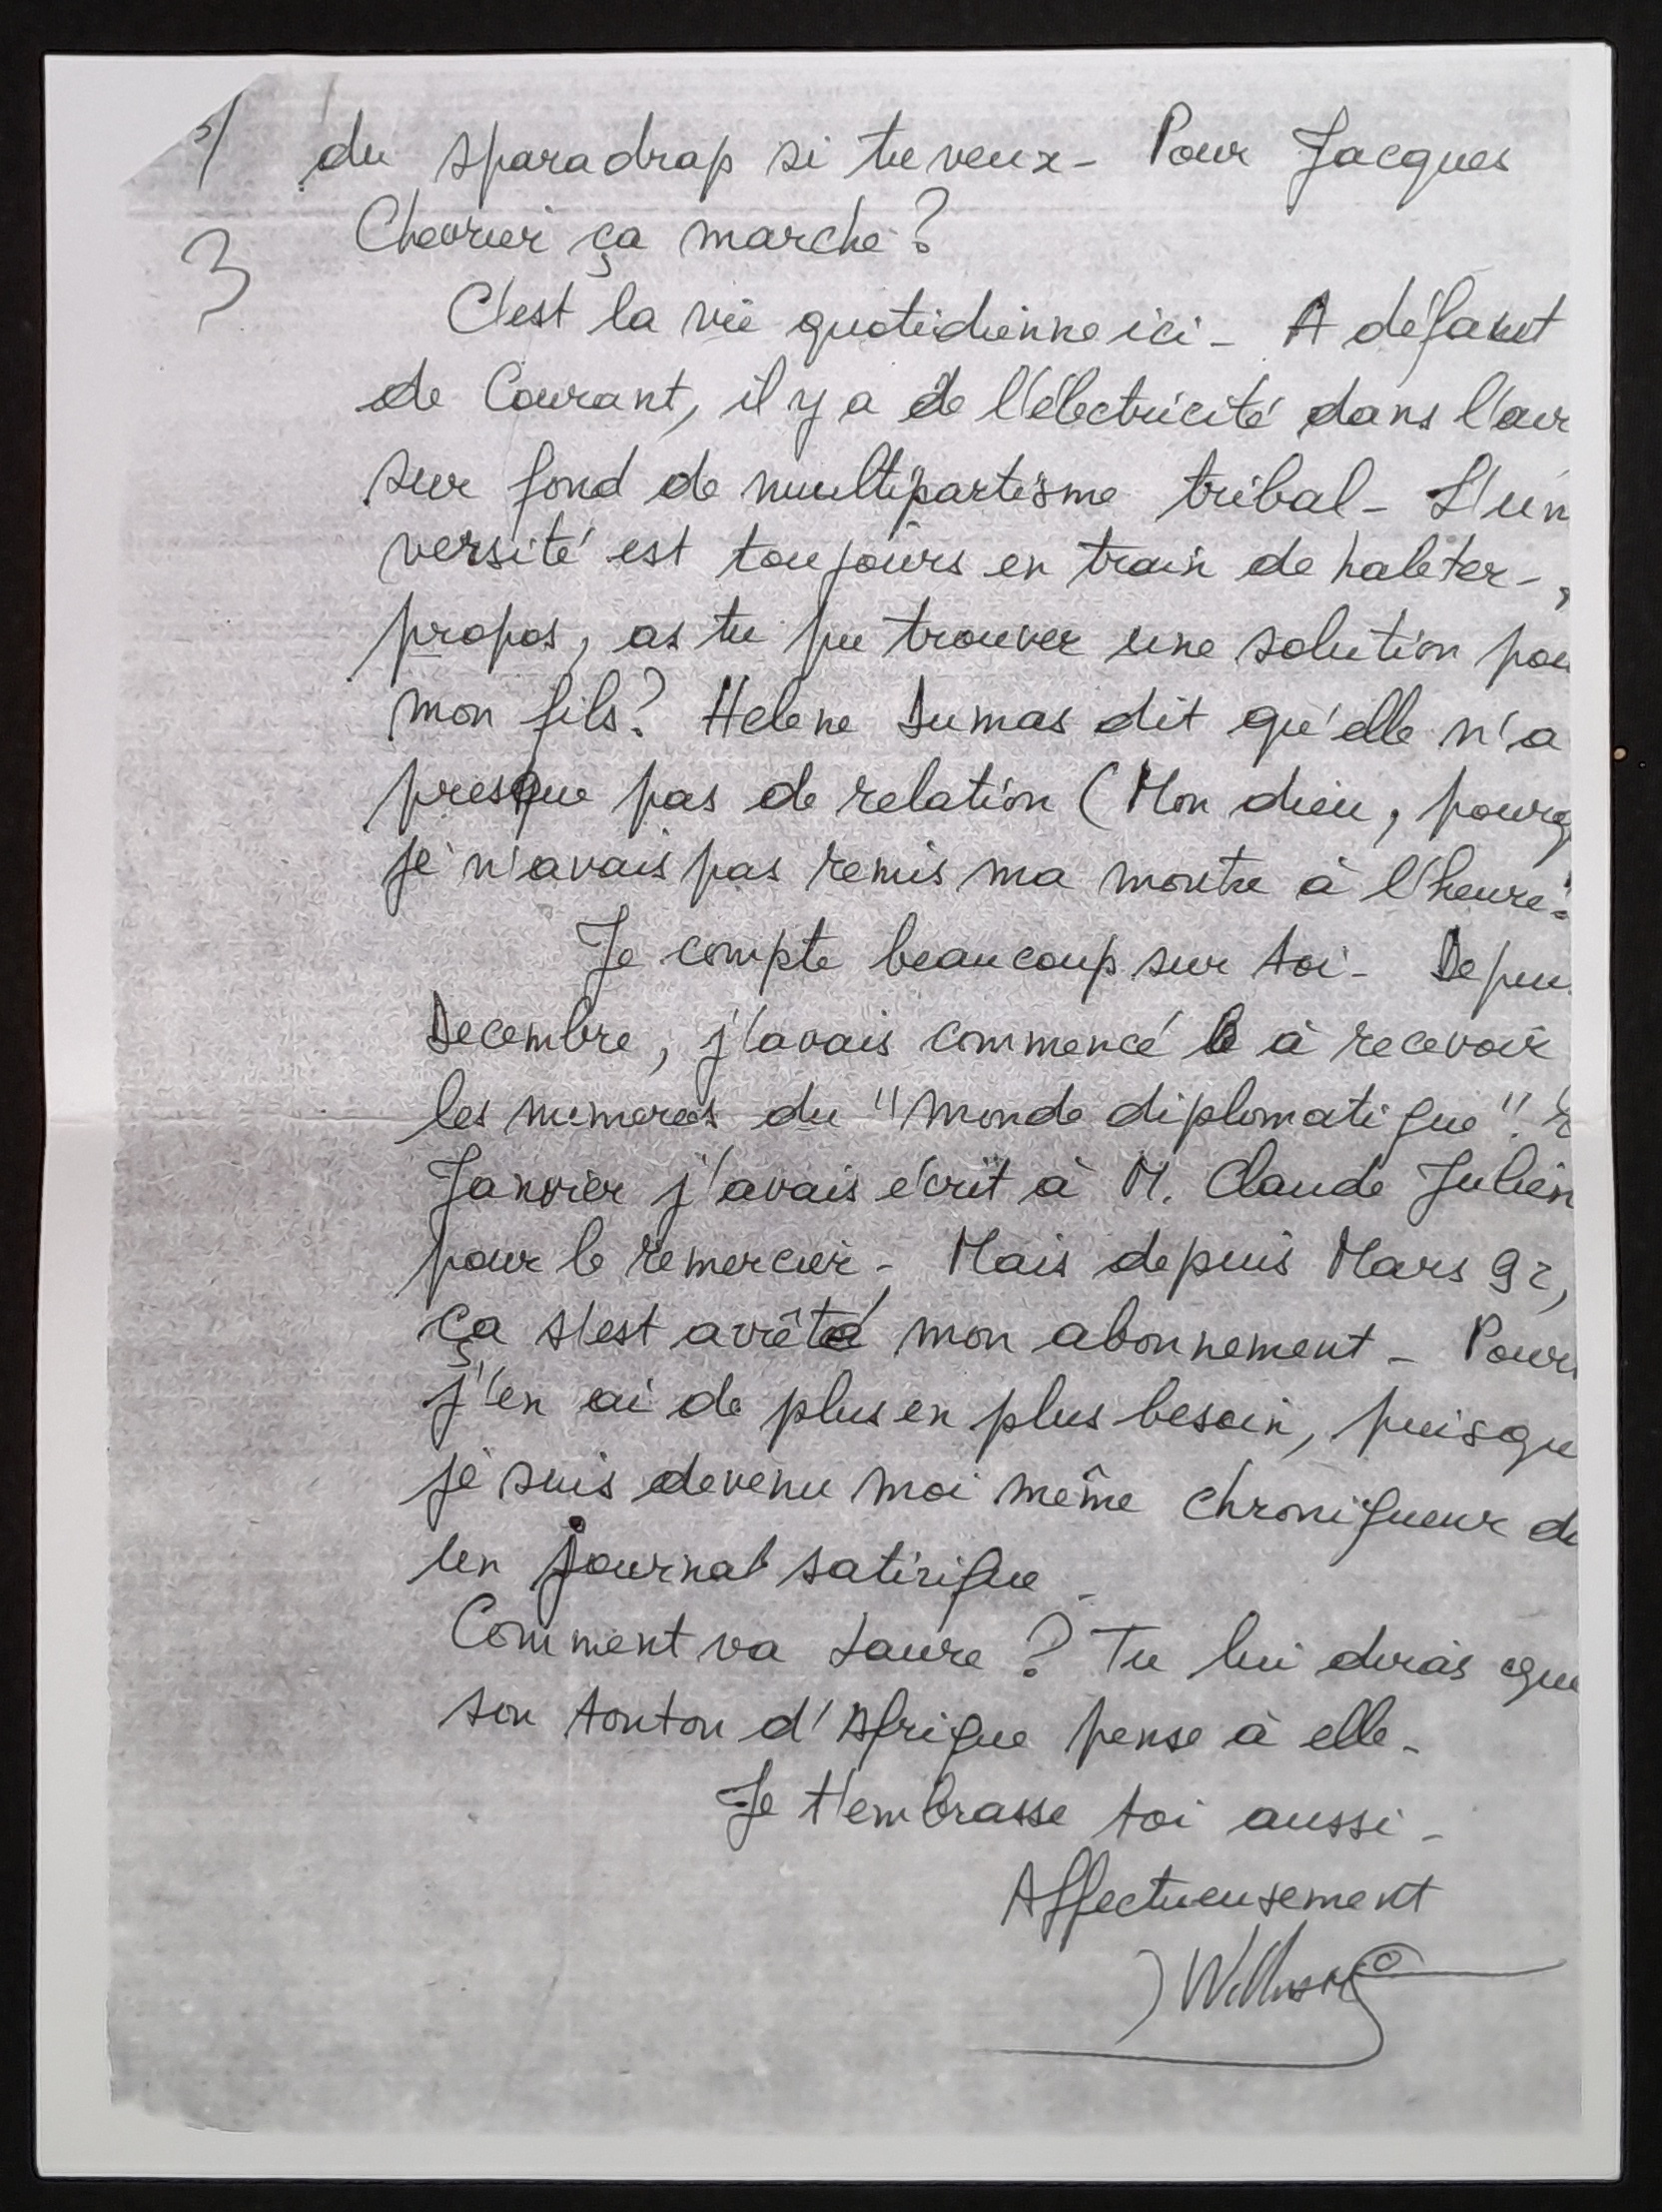 du sparadrap si tu veux - Pour Jacques
3
Chevrier ça marche ?
C'est la vie quotidienne ici - A défaut
de Courant, il y a de l'électricité dans l'air
sur fond de multipartisme tribal - L'un
versité est toujours en train de haleter -
propos, as tu pu trouver une solution pou
mon fils ? Helene Dumas dit qu'elle n'a
presque pas de relation (Mon dieu, pourq
je n'avais pas remis ma montre à l'heure
Je compte beaucoup sur toi - Depui
Decembre, j'avais commencé à recevoir
les numeros du "monde diplomatique".
Janvier j'avais écrit à M. Claude Julien
pour le remercier - Mais depuis Mars 92,
ça s'est arrêté mon abonnement - Pour
j'en ai de plus en plus besoin, puisqu
je suis devenu moi même chroniqueur d
un journal satirique -
Comment va Laure ? Tu lui diras que
son tonton d'Afrique pense à elle -
Je t'embrasse toi aussi -
Affectueusement